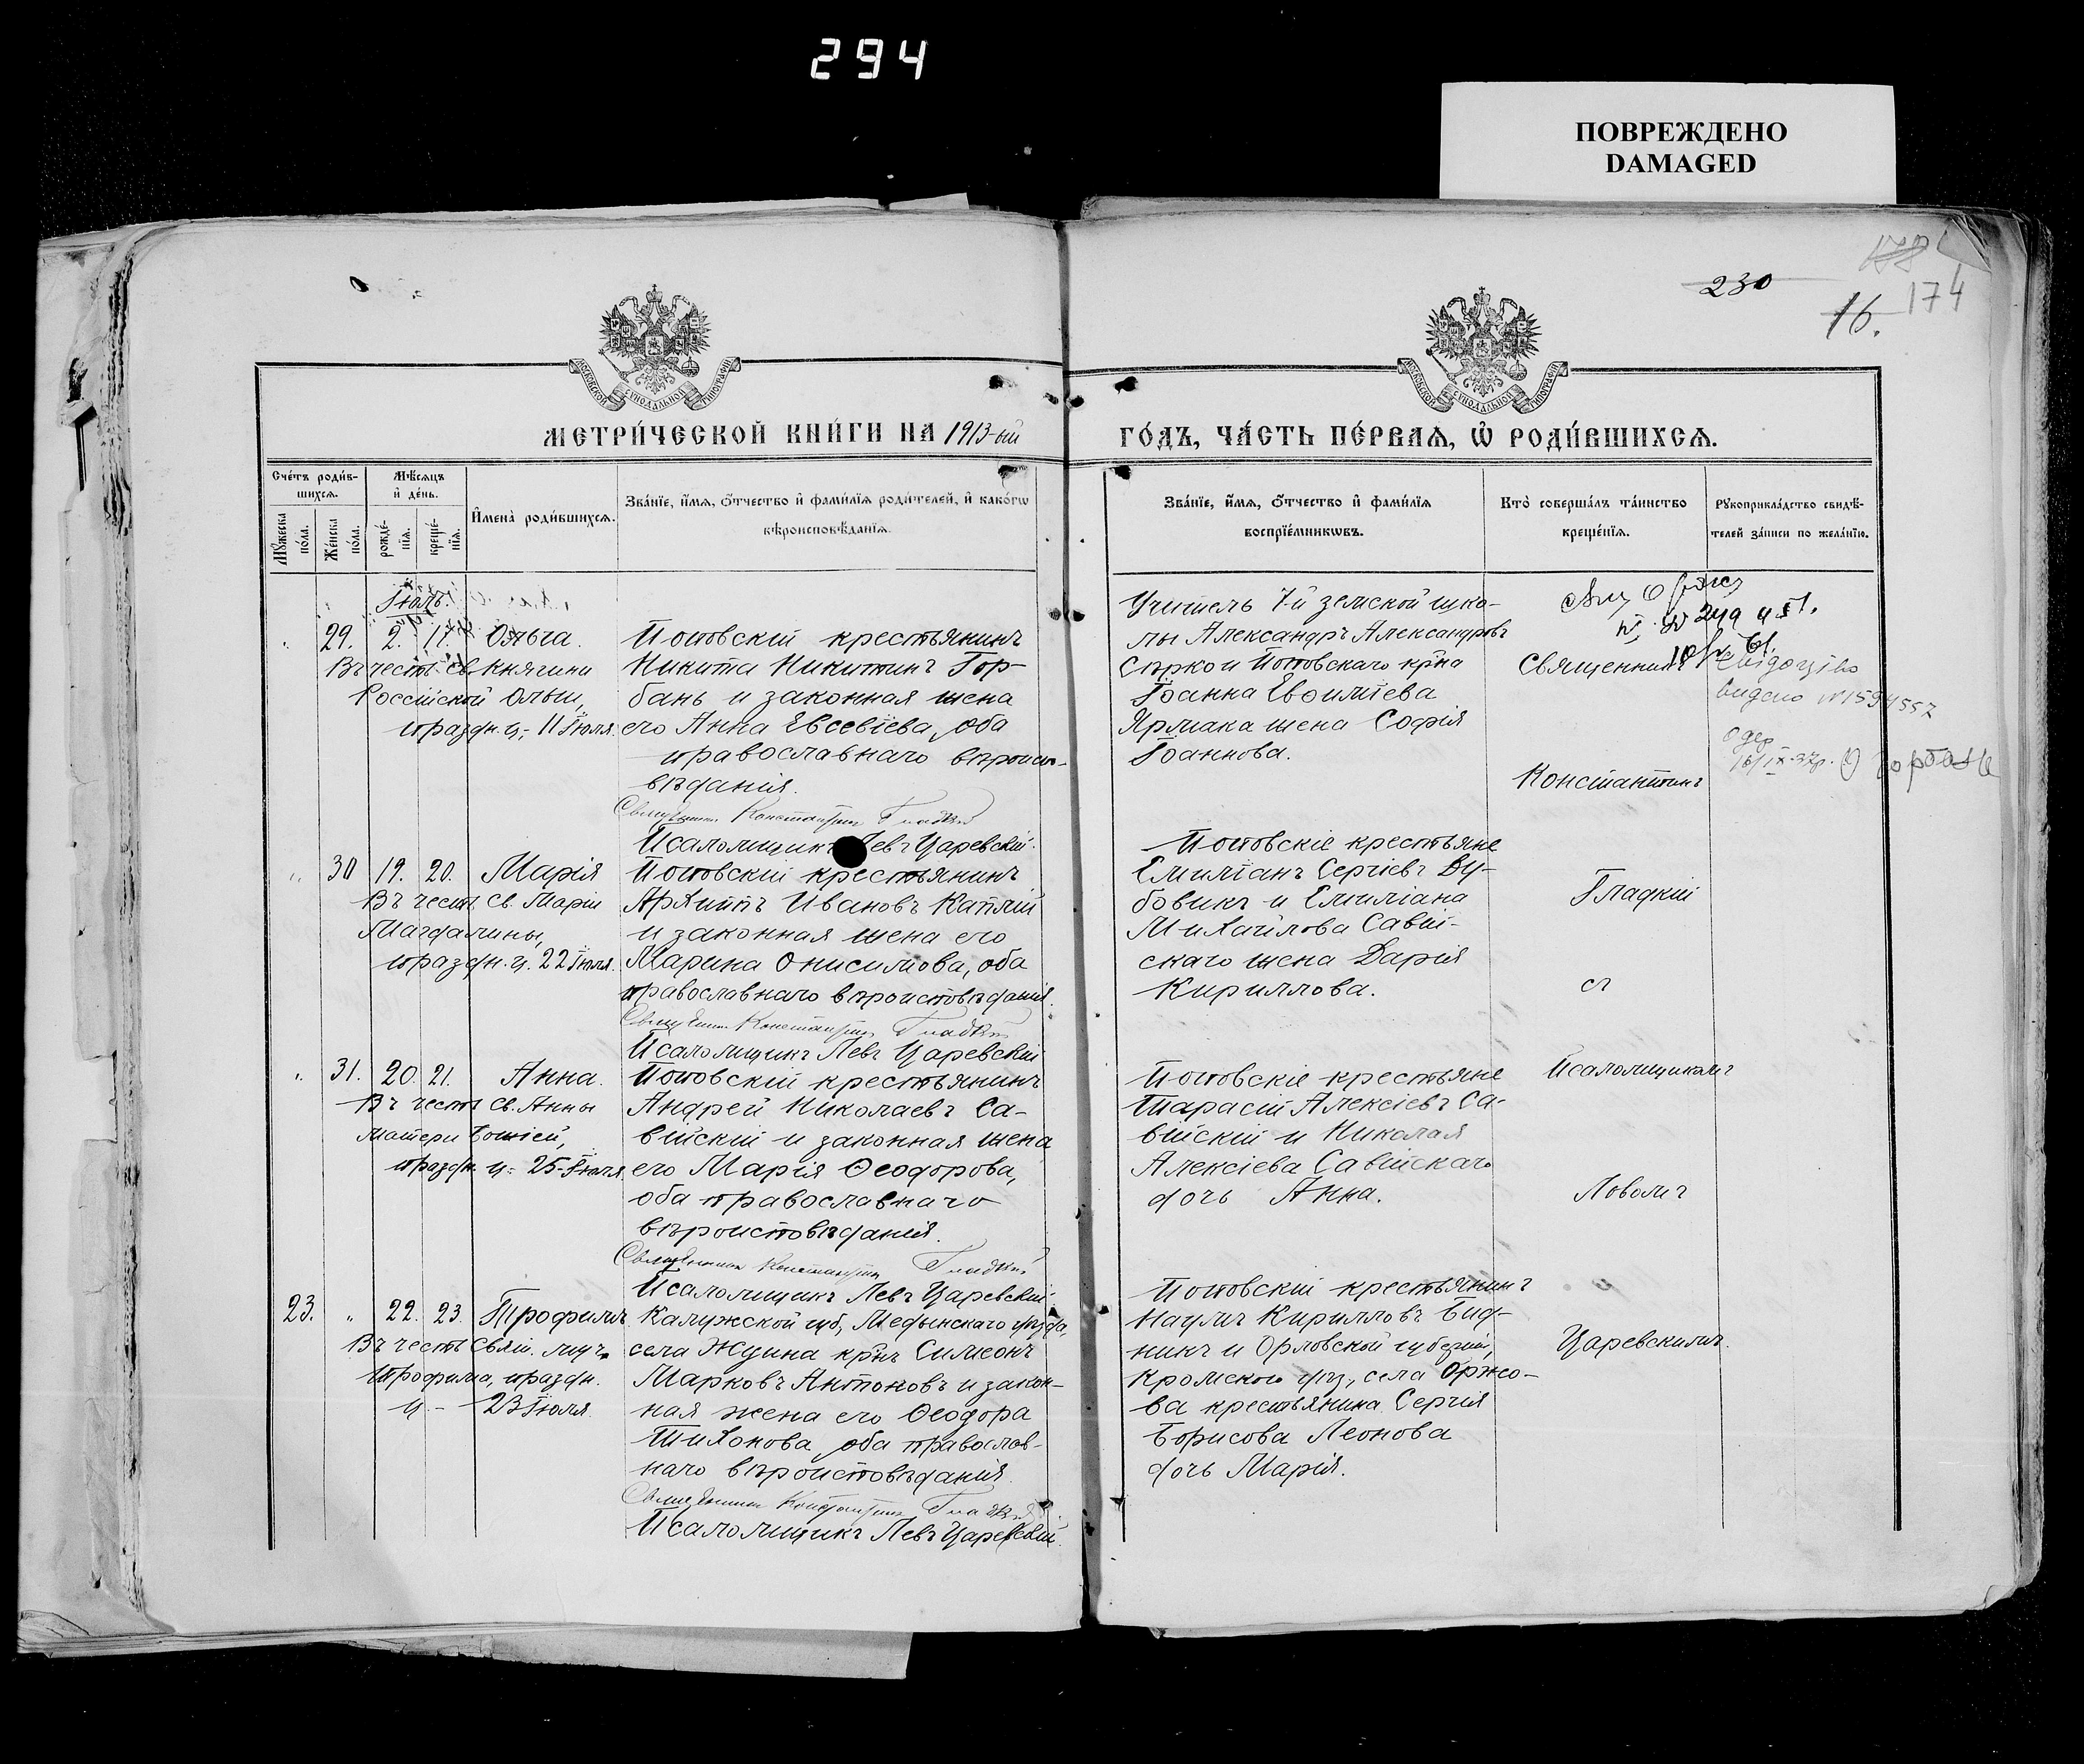 294
ПОВРЕЖДЕНО
DAMAGED
174
230
16.
МОСКОВСКОЙ СѴНОДАЛЬНОЙ ТИПОГРАФІИ
МОСКОВСКОЙ СѴНОДАЛЬНОЙ ТИПОГРАФІИ
МЕТРИ́ЧЕСКОЙ КНИ́ГИ НА 1913-ый
ГО́ДЪ, ЧА́СТЬ ПЕ́РВАѦ, Ѡ҆ РОДИ́ВШИХСѦ.
Сче́тъ роди́в-
шихсѧ.
Мꙋ́жеска по́ла.
Же́нска по́ла.
Мѣ́сѧцъ
и҆ де́нь.
рожде́-
нїѧ.
креще́-
нїѧ.
И҆мена̀ роди́вшихсѧ.
Зва́нїе, и҆́мѧ, ѻ҆́тчество и҆ фами́лїѧ роди́телей, и҆ како́гѡ
вѣроисповѣ́данїѧ.
Зва́нїе, и҆́мѧ, ѻ҆́тчество и҆ фами́лїѧ
воспрїе́мникѡвъ.
Кто̀ соверша́лъ та́инство
креще́нїѧ.
Рꙋкоприкла́дство свидѣ́-
телей за́писи по жела́нїю.
Іюль.
29. 2. 17. Ольга.
Въ честь св. княгини
Россійской Ольги,
праздн. ц.- 11 Іюля.
Поповскій крестьянинъ
Никита Никитинъ Гор-
бань и законная жена
его Анна Евсевіева, оба
православнаго вѣроиспо-
вѣданія.
Священникъ Константинъ Гладкій
Псаломщикъ Левъ Царевскій.
Учитель 7-й земской шко-
лы Александръ Александровъ
Сѣрко и Поповскаго кр-на
Іоанна Евѳиміева
Ярмака жена Софія
Іоаннова.
Священникъ
Константинъ
Гладкій
съ
Псаломщикомъ
Львомъ
Царевскимъ.
видано №1594557
" 30 19. 20. Марія
Въ честь св. Маріи
Магдалины,
праздн. ц. 22 Іюля.
Поповскій крестьянинъ
Архипъ Ивановъ Каплій
и законная жена его
Марина Онисимова, оба
православнаго вѣроисповѣданія.
Священникъ Константинъ Гладкій
Псаломщикъ Левъ Царевскій
Поповскіе крестьяне
Емиліанъ Сергіевъ Ду-
бовикъ и Емиліана
Михайлова Савій-
скаго жена Дарія
Кириллова.
" 31. 20. 21. Анна.
Въ честь св. Анны
матери Божіей,
праздн. ц- 25 Іюля.
Поповскій крестьянинъ
Андрей Николаевъ Са-
війскій и законная жена
его Марія Ѳеодорова,
оба православнаго
вѣроисповѣданія.
Священникъ Константинъ Гладкій
Псаломщикъ Левъ Царевскій.
Поповскіе крестьяне
Тарасій Алексіевъ Са-
війскій и Николая
Алексіева Савійскаго
дочь Анна.
23. " 22. 23. Трофимъ
Въ честь Свящ. муч.
Трофима, праздн.
ц.- 23 Іюля.
Калужской губ, Медынскаго уѣзда,
села Жуина кр-нъ Симеонъ
Марковъ Антоновъ и закон-
ная жена его Ѳеодора
Тихонова, оба православ-
наго вѣроисповѣданія.
Священникъ Константинъ Гладкій
Псаломщикъ Левъ Царевскій.
Поповскій крестьянинъ
Наумъ Кирилловъ Бид-
никъ и Орловской губерніи,
Кромского уѣз., села Оржо-
ва крестьянина Сергія
Борисова Леонова
дочь Марія.